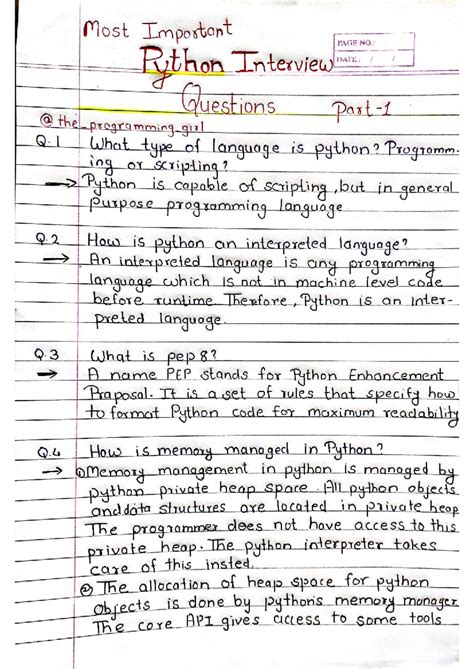 Most Important
PAGE NO.:
Python Interview
DATE: / /
Questions Part-1
@the_programming_girl
Q.1 What type of language is python? Programm-
ing or scripting?
→ Python is capable of scripting, but in general
purpose programming language
Q.2 How is python an interpreted language?
→ An interpreted language is any programming
language which is not in machine level code
before runtime Therefore, Python is an Inter-
preted language.
Q.3 What is pep 8?
→ A name PEP stands for Python Enhancement
Praposal. It is a set of rules that specify how
to format Python code for maximum readability
Q.4 How is memory managed in Python?
→ ① Memory management in python is managed by
python private heap space. All python objects
and data structures are located in private heap
The programmer does not have access to this
private heap. The python interpreter takes
care of this insted.
② The allocation of heap space for python
objects is done by python's memory manager
The core API gives access to some tools